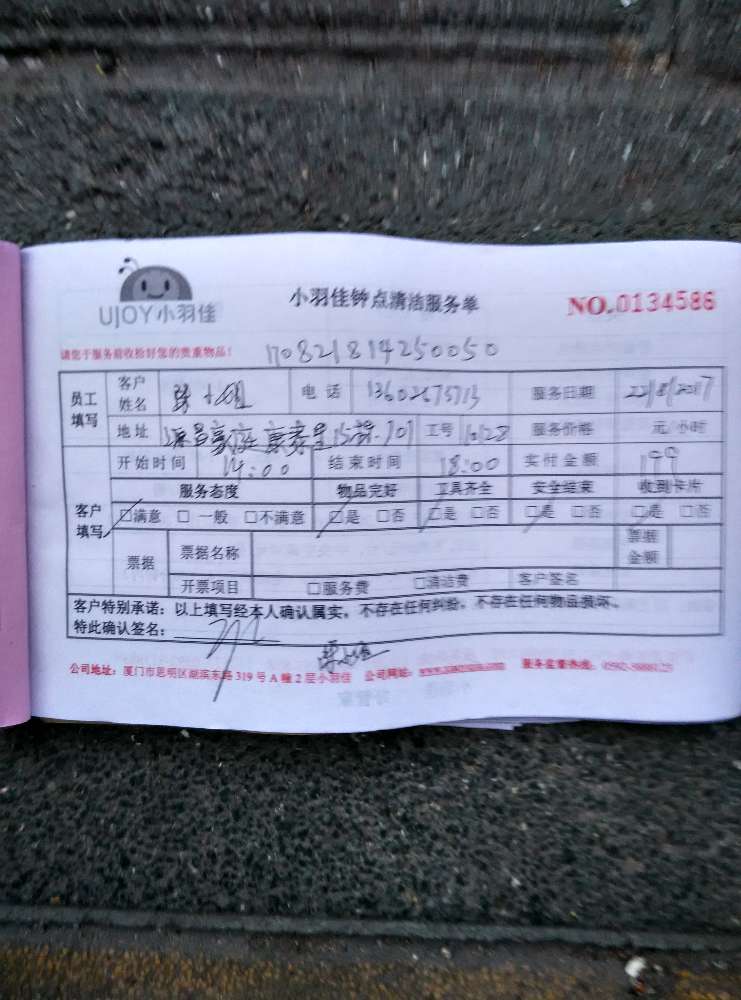 UJOY小羽佳
小羽佳钟点清洁服务单
NO.0134586
请您于服务前收拾好您的贵重物品!
170821814250050
员工填写 客户姓名 小姐 电话 服务日期 22/8/2017
地址 康泰里15栋.701 工号 服务价格 元/小时
客户填写 开始时间 14:00 结束时间 18:00 实付金额 199
服务态度 物品完好 工具齐全 安全结束 收到卡片
□满意 □一般 □不满意 □是 □否 □是 □否 □是 □否 □是 □否
票据 票据名称 票据金额
开票项目 □服务费 □清洁费 客户签名
客户特别承诺:以上填写经本人确认属实,不存在任何纠纷,不存在任何物品损坏。
特此确认签名:
公司地址:厦门市思明区湖滨东路319号A幢2层小羽佳 公司网站: 服务监督热线: